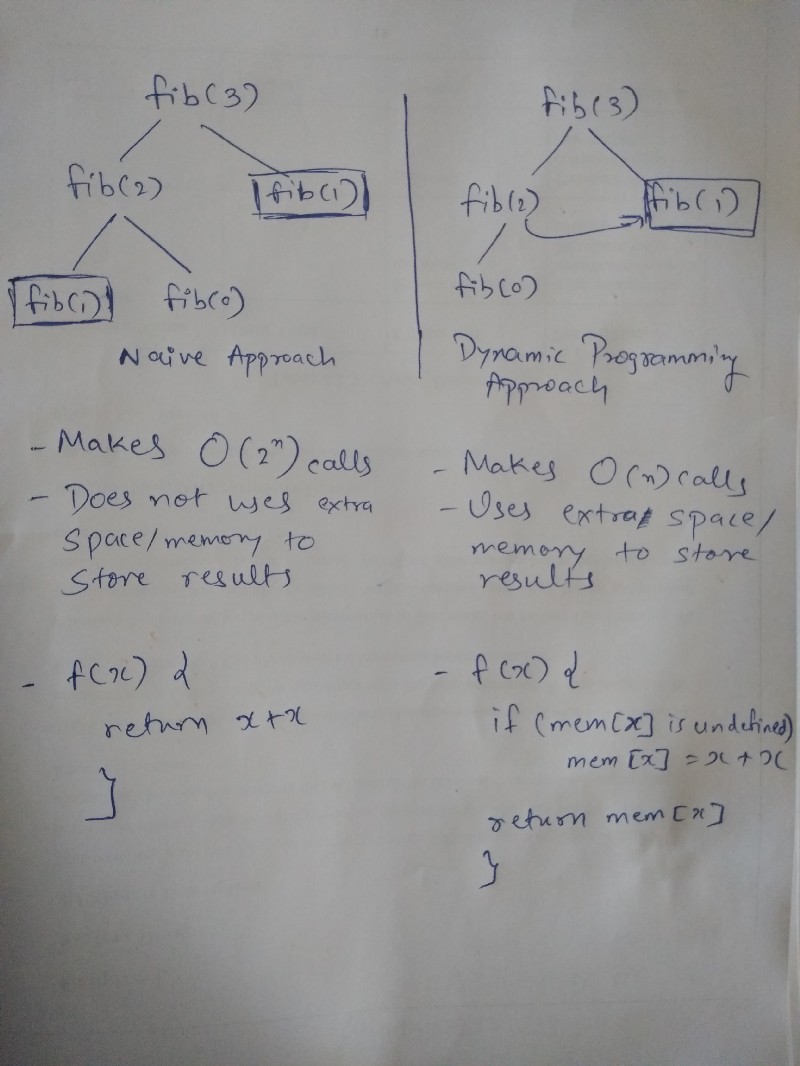 fib(3)
fib(2) fib(1)
fib(1) fib(0)
Naive Approach
- Makes O(2ⁿ) calls
- Does not uses extra
space/memory to
store results
- f(x) {
return x+x
}
fib(3)
fib(2) fib(1)
fib(0)
Dynamic Programming
Approach
- Makes O(n) calls
- Uses extra space/
memory to store
results
- f(x) {
if (mem[x] is undefined)
mem[x] = x + x
return mem[x]
}